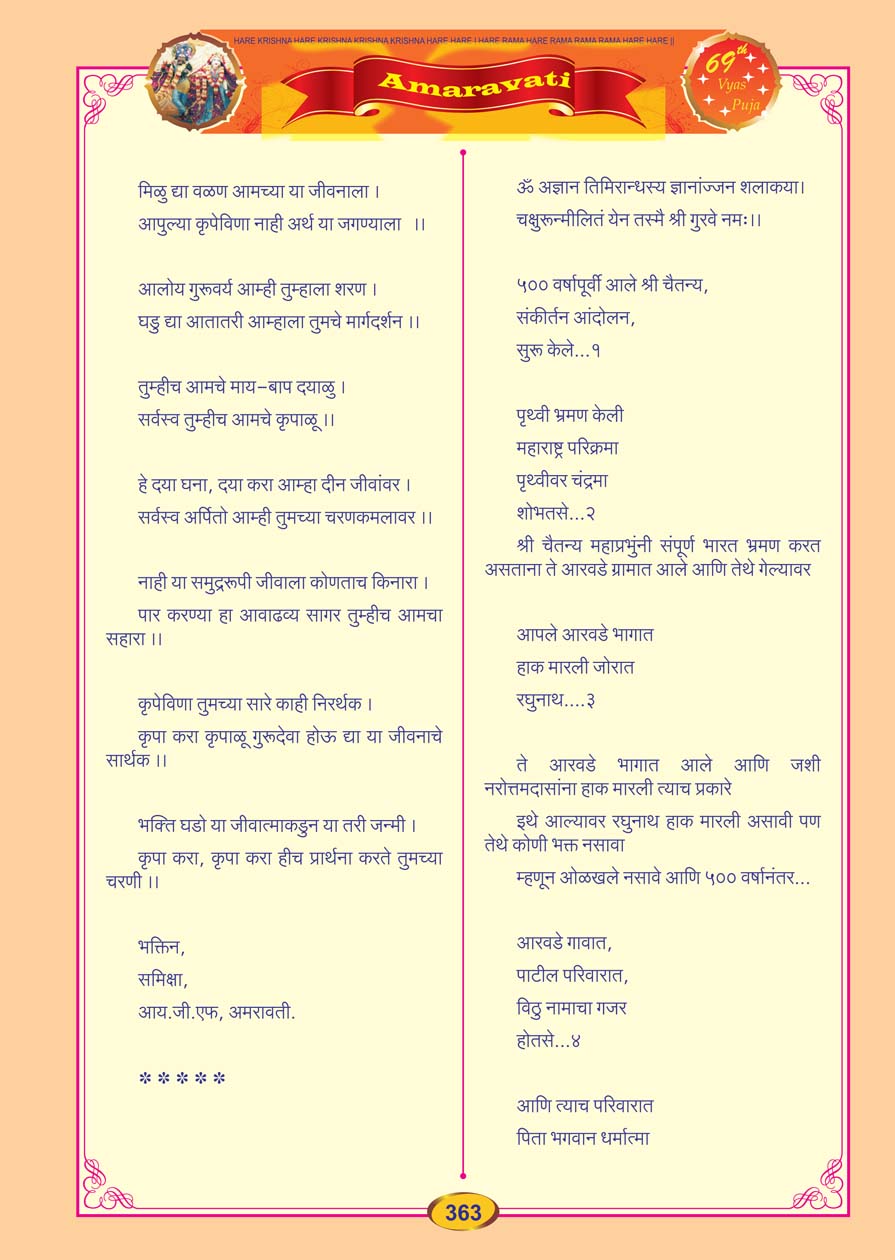 HARE KRISHNA HARE KRISHNA KRISHNA KRISHNA HARE HARE | HARE RAMA HARE RAMA RAMA RAMA HARE HARE ||
Amaravati
69th
Vyas
Puja
मिळु द्या वळण आमच्या या जीवनाला ।
आपुल्या कृपेविणा नाही अर्थ या जगण्याला ।।
आलोय गुरूवर्य आम्ही तुम्हाला शरण ।
घडु द्या आतातरी आम्हाला तुमचे मार्गदर्शन ।।
तुम्हीच आमचे माय–बाप दयाळु ।
सर्वस्व तुम्हीच आमचे कृपाळू ।।
हे दया घना, दया करा आम्हा दीन जीवांवर ।
सर्वस्व अर्पितो आम्ही तुमच्या चरणकमलावर ।।
नाही या समुद्ररूपी जीवाला कोणताच किनारा ।
पार करण्या हा आवाढव्य सागर तुम्हीच आमचा
सहारा ।।
कृपेविणा तुमच्या सारे काही निरर्थक ।
कृपा करा कृपाळू गुरूदेवा होऊ द्या या जीवनाचे
सार्थक ।।
भक्ति घडो या जीवात्माकडुन या तरी जन्मी ।
कृपा करा, कृपा करा हीच प्रार्थना करते तुमच्या
चरणी ।।
भक्तिन,
समिक्षा,
आय.जी.एफ, अमरावती.
*****
ॐ अज्ञान तिमिरान्धस्य ज्ञानांज्जन शलाकया।
चक्षुरून्मीलितं येन तस्मै श्री गुरवे नमः।।
५०० वर्षापूर्वी आले श्री चैतन्य,
संकीर्तन आंदोलन,
सुरू केले...१
पृथ्वी भ्रमण केली
महाराष्ट्र परिक्रमा
पृथ्वीवर चंद्रमा
शोभतसे...२
श्री चैतन्य महाप्रभुंनी संपूर्ण भारत भ्रमण करत
असताना ते आरवडे ग्रामात आले आणि तेथे गेल्यावर
आपले आरवडे भागात
हाक मारली जोरात
रघुनाथ....३
ते आरवडे भागात आले आणि जशी
नरोत्तमदासांना हाक मारली त्याच प्रकारे
इथे आल्यावर रघुनाथ हाक मारली असावी पण
तेथे कोणी भक्त नसावा
म्हणून ओळखले नसावे आणि ५०० वर्षानंतर...
आरवडे गावात,
पाटील परिवारात,
विठु नामाचा गजर
होतसे...४
आणि त्याच परिवारात
पिता भगवान धर्मात्मा
363